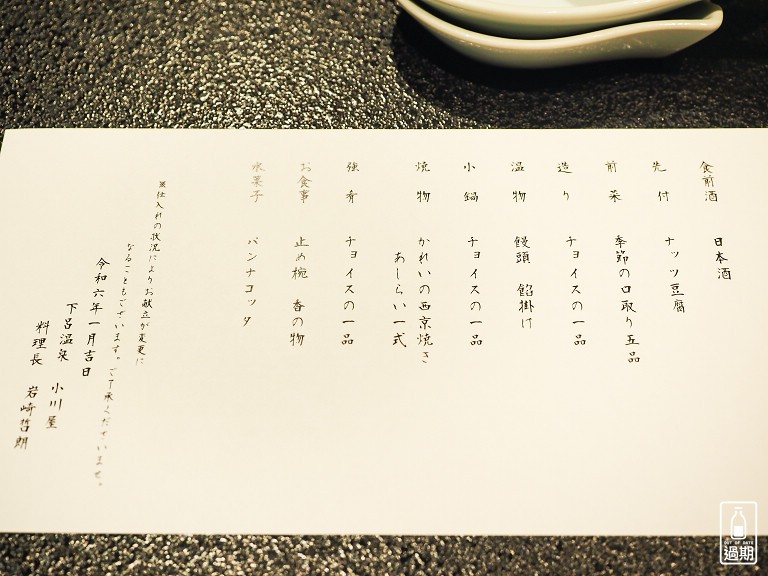 食前酒 日本酒
先付 ナッツ豆腐
前菜 季節の口取り五品
造り チョイスの一品
温物 饅頭 餡掛け
小鍋 チョイスの一品
焼物 かれいの西京焼き
あしらい一式
強肴 チョイスの一品
お食事 止め椀 香の物
水菓子 パンナコッタ
※仕入れの状況によりお献立が変更に
なることもございます。ご了承くださいませ。
令和六年一月吉日
下呂温泉 小川屋
料理長 岩崎哲朗
OUT OF DATE
過期